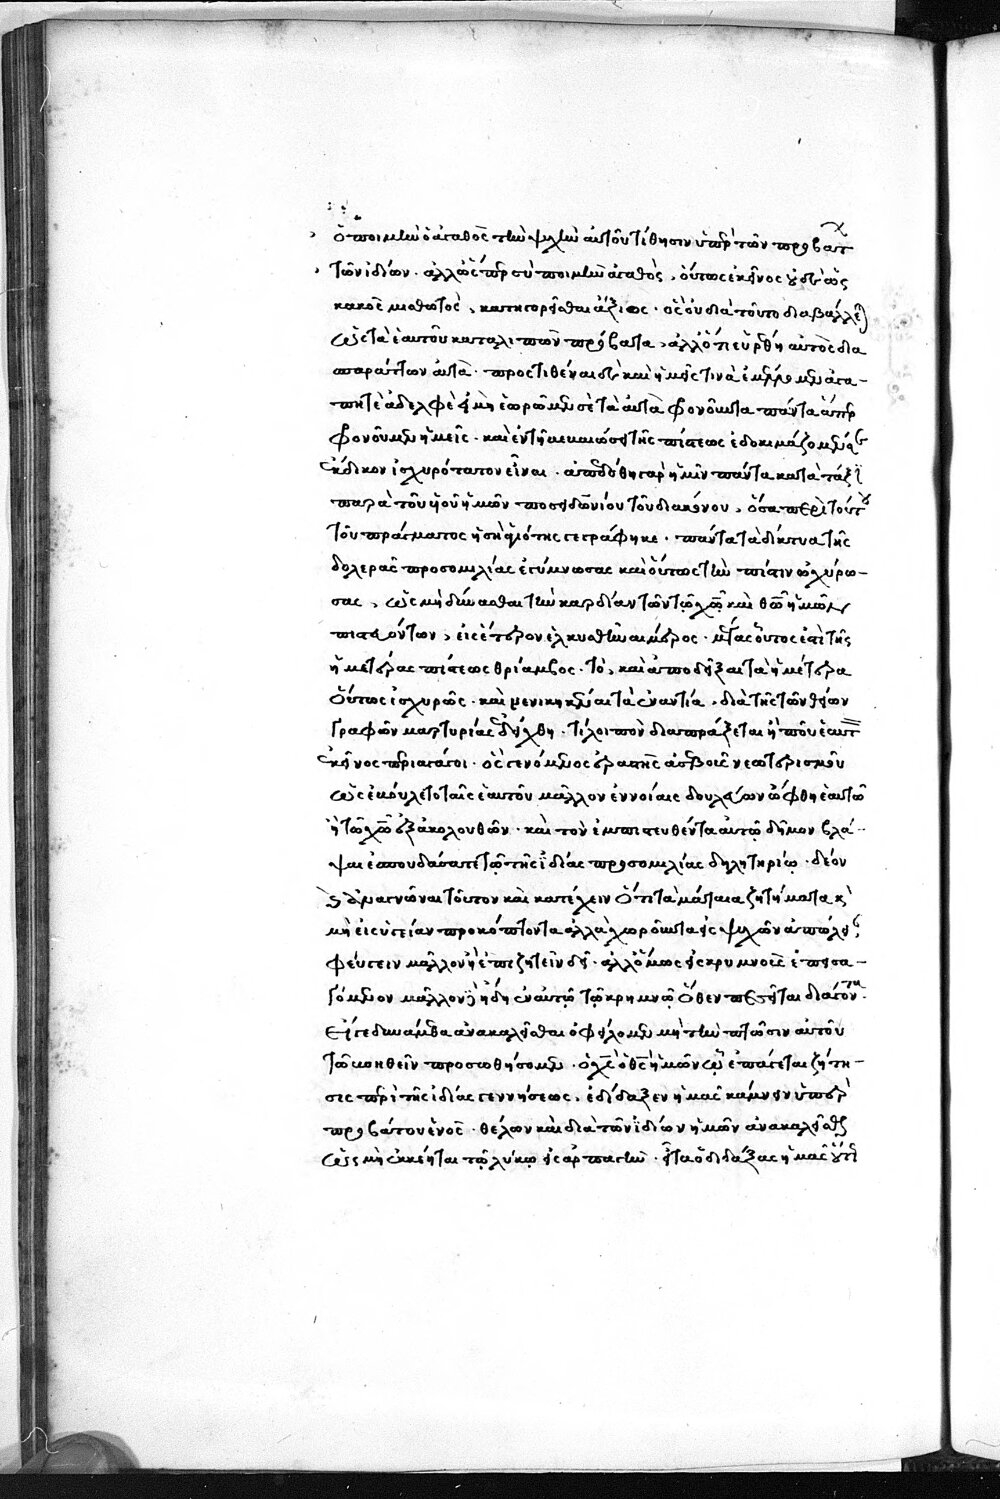 ὁ ποιμὴν ὁ ἀγαθὸς τὴν ψυχὴν αὐτοῦ τίθησιν ὑπὲρ τῶν προβάτ
τῶν ἰδίων · ἀλλ' ὥσπερ σὺ ποιμὴν ἀγαθός, οὕτως ἐκεῖνος οὐδ' ὡς
κακὸς μισθωτὸς, κατηγορεῖσθαι ἄξιος · ὃς οὐ διὰ τοῦτο διαβάλλε
ὡς τὰ ἑαυτοῦ καταλιπὼν πρόβατα, ἀλλ' ὅτι εὑρέθη αὐτὸς δια
σπαράττων αὐτά · προστιθέναι δὲ καὶ ἡμεῖς τινὰ ἐμέλλομεν ἀγα-
πητὲ ἀδελφὲ εἰ μὴ ἑωρῶμέν σε τὰ αὐτὰ φρονοῦντα πάντα ἅπερ
φρονοῦμεν ἡμεῖς · καὶ ἐν τῇ βεβαιώσει τῆς πίστεως ἐδοκιμάζομέν
ἔκδικον ἰσχυρότατον εἶναι · ἀπεδόθη γὰρ ἡμῖν πάντα κατὰ τάξι
παρὰ τοῦ υἱοῦ ἡμῶν ποσειδωνίου τοῦ διακόνου, ὅσα περὶ τούτου
τοῦ πράγματος ἡ σὴ ὁσιότης γεγράφηκε · πάντα τὰ δίκτυα τῆς
δολερᾶς προσομιλίας ἐγύμνωσας καὶ οὕτως τὴν πίστιν ὠχύρω-
σας, ὡς μὴ δύνασθαι τὴν καρδίαν τῶν τῷ χῷ καὶ θῷ ἡμῶν
πιστευόντων, εἰς ἕτερον ἑλκυσθῆναι μέρος · μέγας οὗτος ἐπὶ τῆς
ἡμετέρας πίστεως θρίαμβος · τὸ, καὶ ἀποδεῖξαι τὰ ἡμέτερα
οὕτως ἰσχυρῶς · καὶ νενικηκέναι τὰ ἐναντία, διὰ τῆς τῶν θείων
γραφῶν μαρτυρίας · τί λοιπὸν διαπράξεται ἢ ποῦ ἑαυτ
ἐκεῖνος περιαγάγοι · ὃς γενόμενος ἐραστὴς ἀσεβοῦς νεωτερισμοῦ
ὡς ἐβούλετο ταῖς ἑαυτοῦ μᾶλλον ἐννοίαις δουλεύων ὤφθη ἑαυτῷ
ἢ τῷ χῷ ἐξακολουθῶν · καὶ τὸν ἐμπιστευθέντα αὐτῷ δῆμον βλά-
ψαι ἐσπούδασε τῷ τῆς ἰδίας προσομιλίας δηλητηρίῳ · δέον
ἀναγνῶναι τοῦτον καὶ κατέχειν ὅτι τὰ μάταια ζητήματα καὶ
μὴ εἰς ὑγείαν προκόπτοντα ἀλλὰ χωροῦντα εἰς ψυχῶν ἀπώλει
φεύγειν μᾶλλον ἢ ἐπιζητεῖν δεῖ · ἀλλ' ὅμως εἰς κρημνοὺς ἐπεισα-
γόμενον μᾶλλον ἢ ἤδη ἐν αὐτῷ τῷ κρημνῷ ὅθεν πέπτηται διὰ τὸν
εἴγε δυνάμεθα ἀνακαλεῖσθαι ὀφείλομεν μὴ τὴν πτῶσιν αὐτοῦ
τῷ βοηθεῖν προσωθήσομεν · ὁ χς ὁ θς ἡμῶν ᾧ ἐπάγεται ζήτη-
σις περὶ τῆς ἰδίας γεννήσεως, ἐδίδαξεν ἡμᾶς κάμνειν ὑπὲρ
προβάτου ἑνός · θέλων καὶ διὰ τῶν ἰδίων ἡμῶν ἀνακαλεῖσθαι
ὡς μὴ ἐκκέηται τῷ λύκῳ εἰς ἁρπαγήν · εἶτα ὁ διδάξας ἡμᾶς